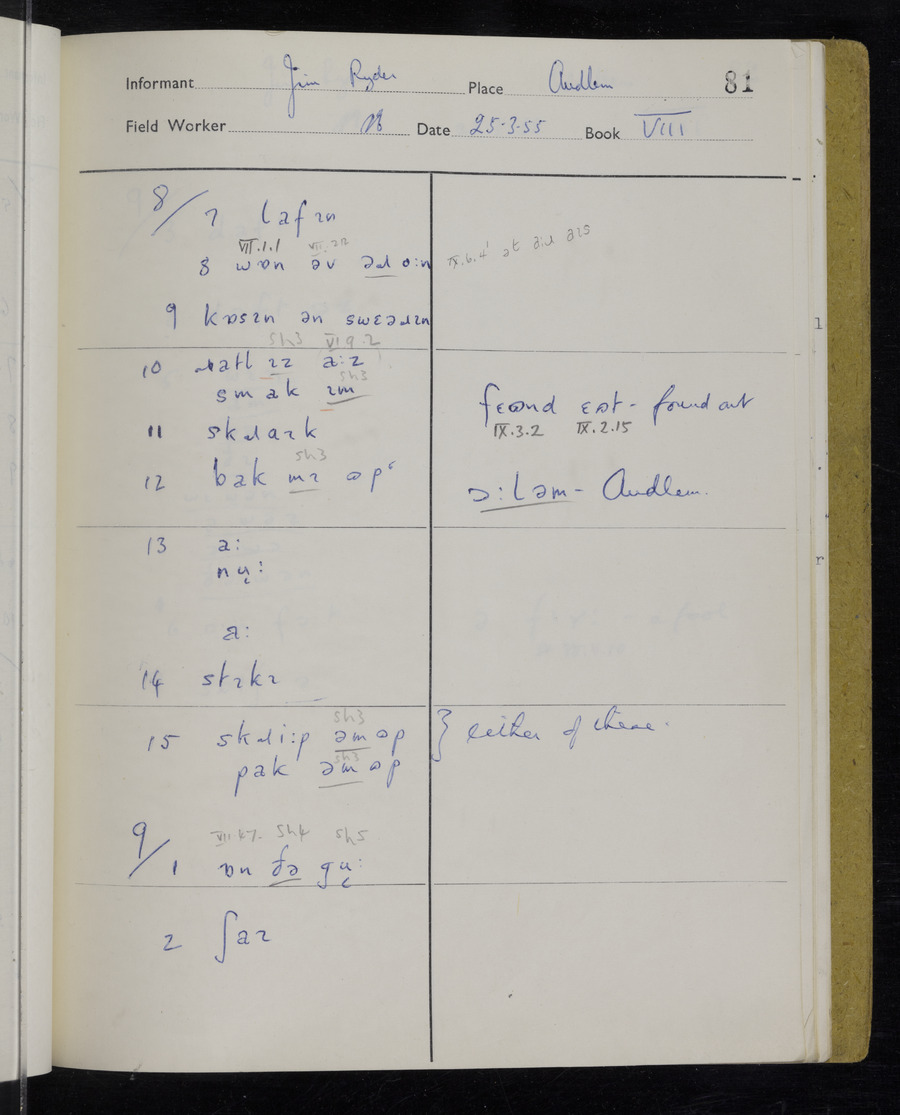 Informant Jim Ryder Place Audlem 81
Field Worker Date 25-3-55 Book VIII
8/7 lafɪn
VII.1.1 VII.
8 wɒn əv əɹ o:n
IX.6.4
9 kɒsɪn ən swɛəɹɪn
sh3 VI 9.2
10 ɹatl ɪz a:z
sh3
smak ɪm
fɛʊnd ɛʊt - found out
IX.3.2 IX.2.15
11 skɹaɪk
sh3
12 bak mɪ ʊp
ɔ:ləm - Audlem.
13 a:
nʉ̜:
a:
14 stɪkɪ
sh3
15 skɹi:p əm ʊp } either of these.
sh3
pak əm ʊp
sh4 sh5
9/1 ɒn ðə gʉ̜:
2 ʃaɪ
l
r